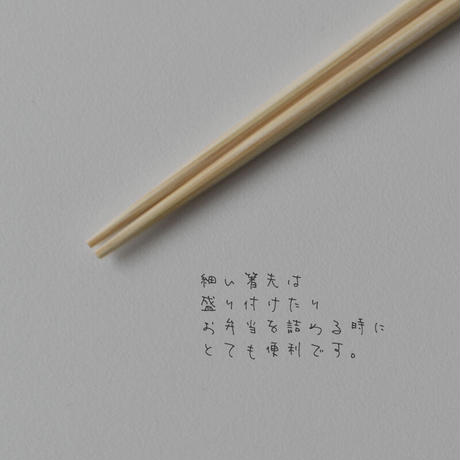 細い箸先は
盛り付けたり
お弁当を詰める時に
とても便利です。